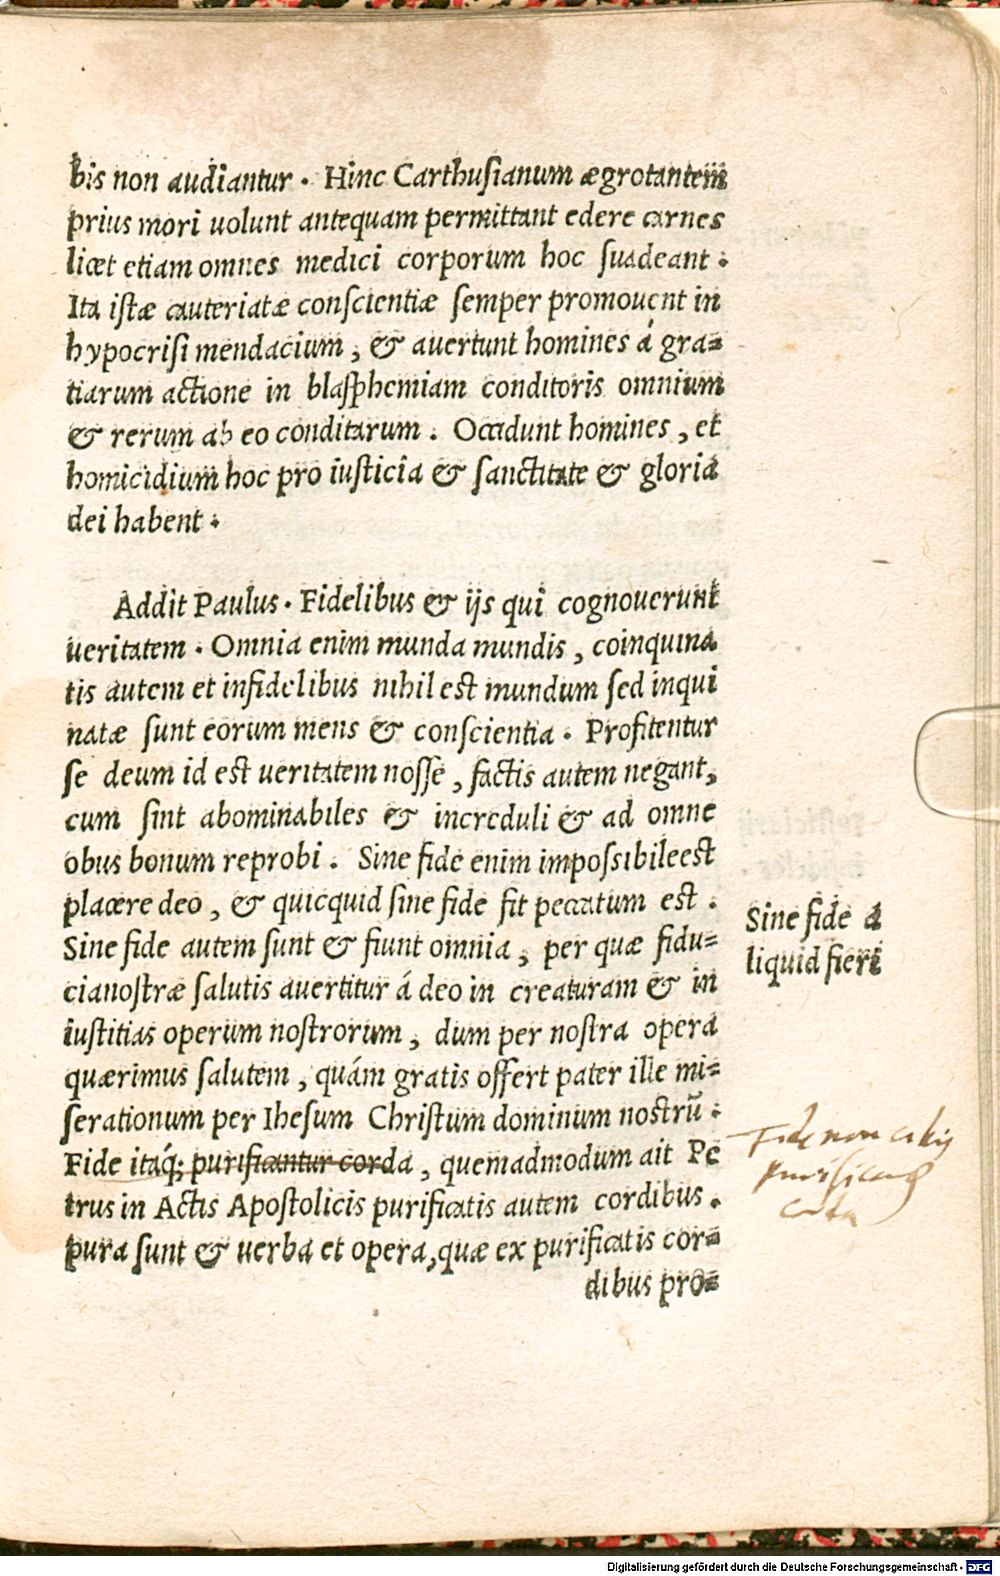 bis non audiantur . Hinc Carthuſianum ægrotantem
prius mori uolunt antequam permittant edere carnes
licet etiam omnes medici corporum hoc ſuadeant .
Ita iſtæ cauteriatæ conſcientiæ ſemper promouent in
hypocriſi mendacium , & auertunt homines á gra=
tiarum actione in blaſphemiam conditoris omnium
& rerum ab eo conditarum . Occidunt homines , et
homicidium hoc pro iuſticia & ſanctitate & gloria
dei habent .
Addit Paulus . Fidelibus & ijs qui cognouerunt
ueritatem . Omnia enim munda mundis , coinquina
tis autem et infidelibus nihil eſt mundum ſed inqui
natæ ſunt eorum mens & conſcientia . Profitentur
ſe deum id eſt ueritatem noſſe , factis autem negant,
cum ſint abominabiles & increduli & ad omne
obus bonum reprobi . Sine fide enim impoſsibile eſt
placere deo , & quicquid ſine fide fit peccatum est .
Sine fide autem ſunt & fiunt omnia , per quæ fidu=
cia noſtræ ſalutis auertitur á deo in creaturam & in
iuſtitias operum noſtrorum , dum per noſtra opera
quærimus ſalutem , quám gratis offert pater ille mi=
ſerationum per Iheſum Chriſtum dominum noſtrū .
Fide itáq; purificantur corda , quemadmodum ait Pe
trus in Actis Apoſtolicis purificatis autem cordibus .
pura ſunt & uerba et opera, quæ ex purificatis cor=
dibus pro=
Sine fide a
liquid fieri
Fide non cibis
corda
Digitalisierung gefördert durch die Deutsche Forschungsgemeinschaft - DFG